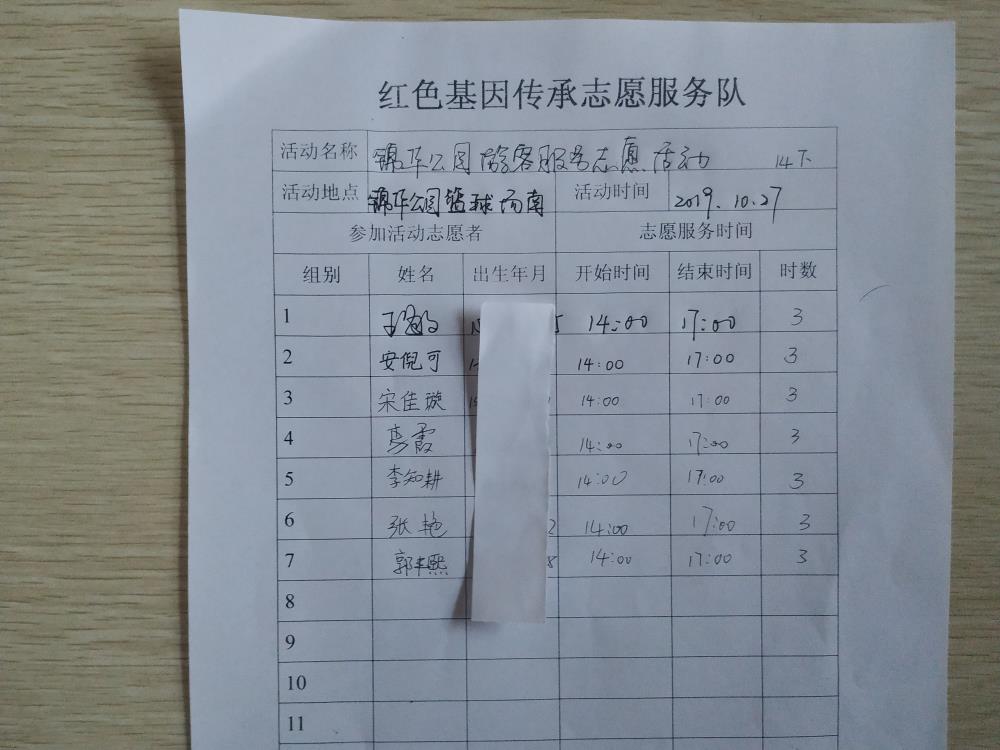 红色基因传承志愿服务队
活动名称 锦华公园游客服务志愿活动 14下
活动地点 锦华公园篮球场南 活动时间 2019.10.27
参加活动志愿者 志愿服务时间
组别 姓名 出生年月 开始时间 结束时间 时数
1 14:00 17:00 3
2 安倪可 14:00 17:00 3
3 宋佳璇 14:00 17:00 3
4 高霞 14:00 17:00 3
5 李知耕 14:00 17:00 3
6 张艳 2 14:00 17:00 3
7 郭丰熙 8 14:00 17:00 3
8
9
10
11